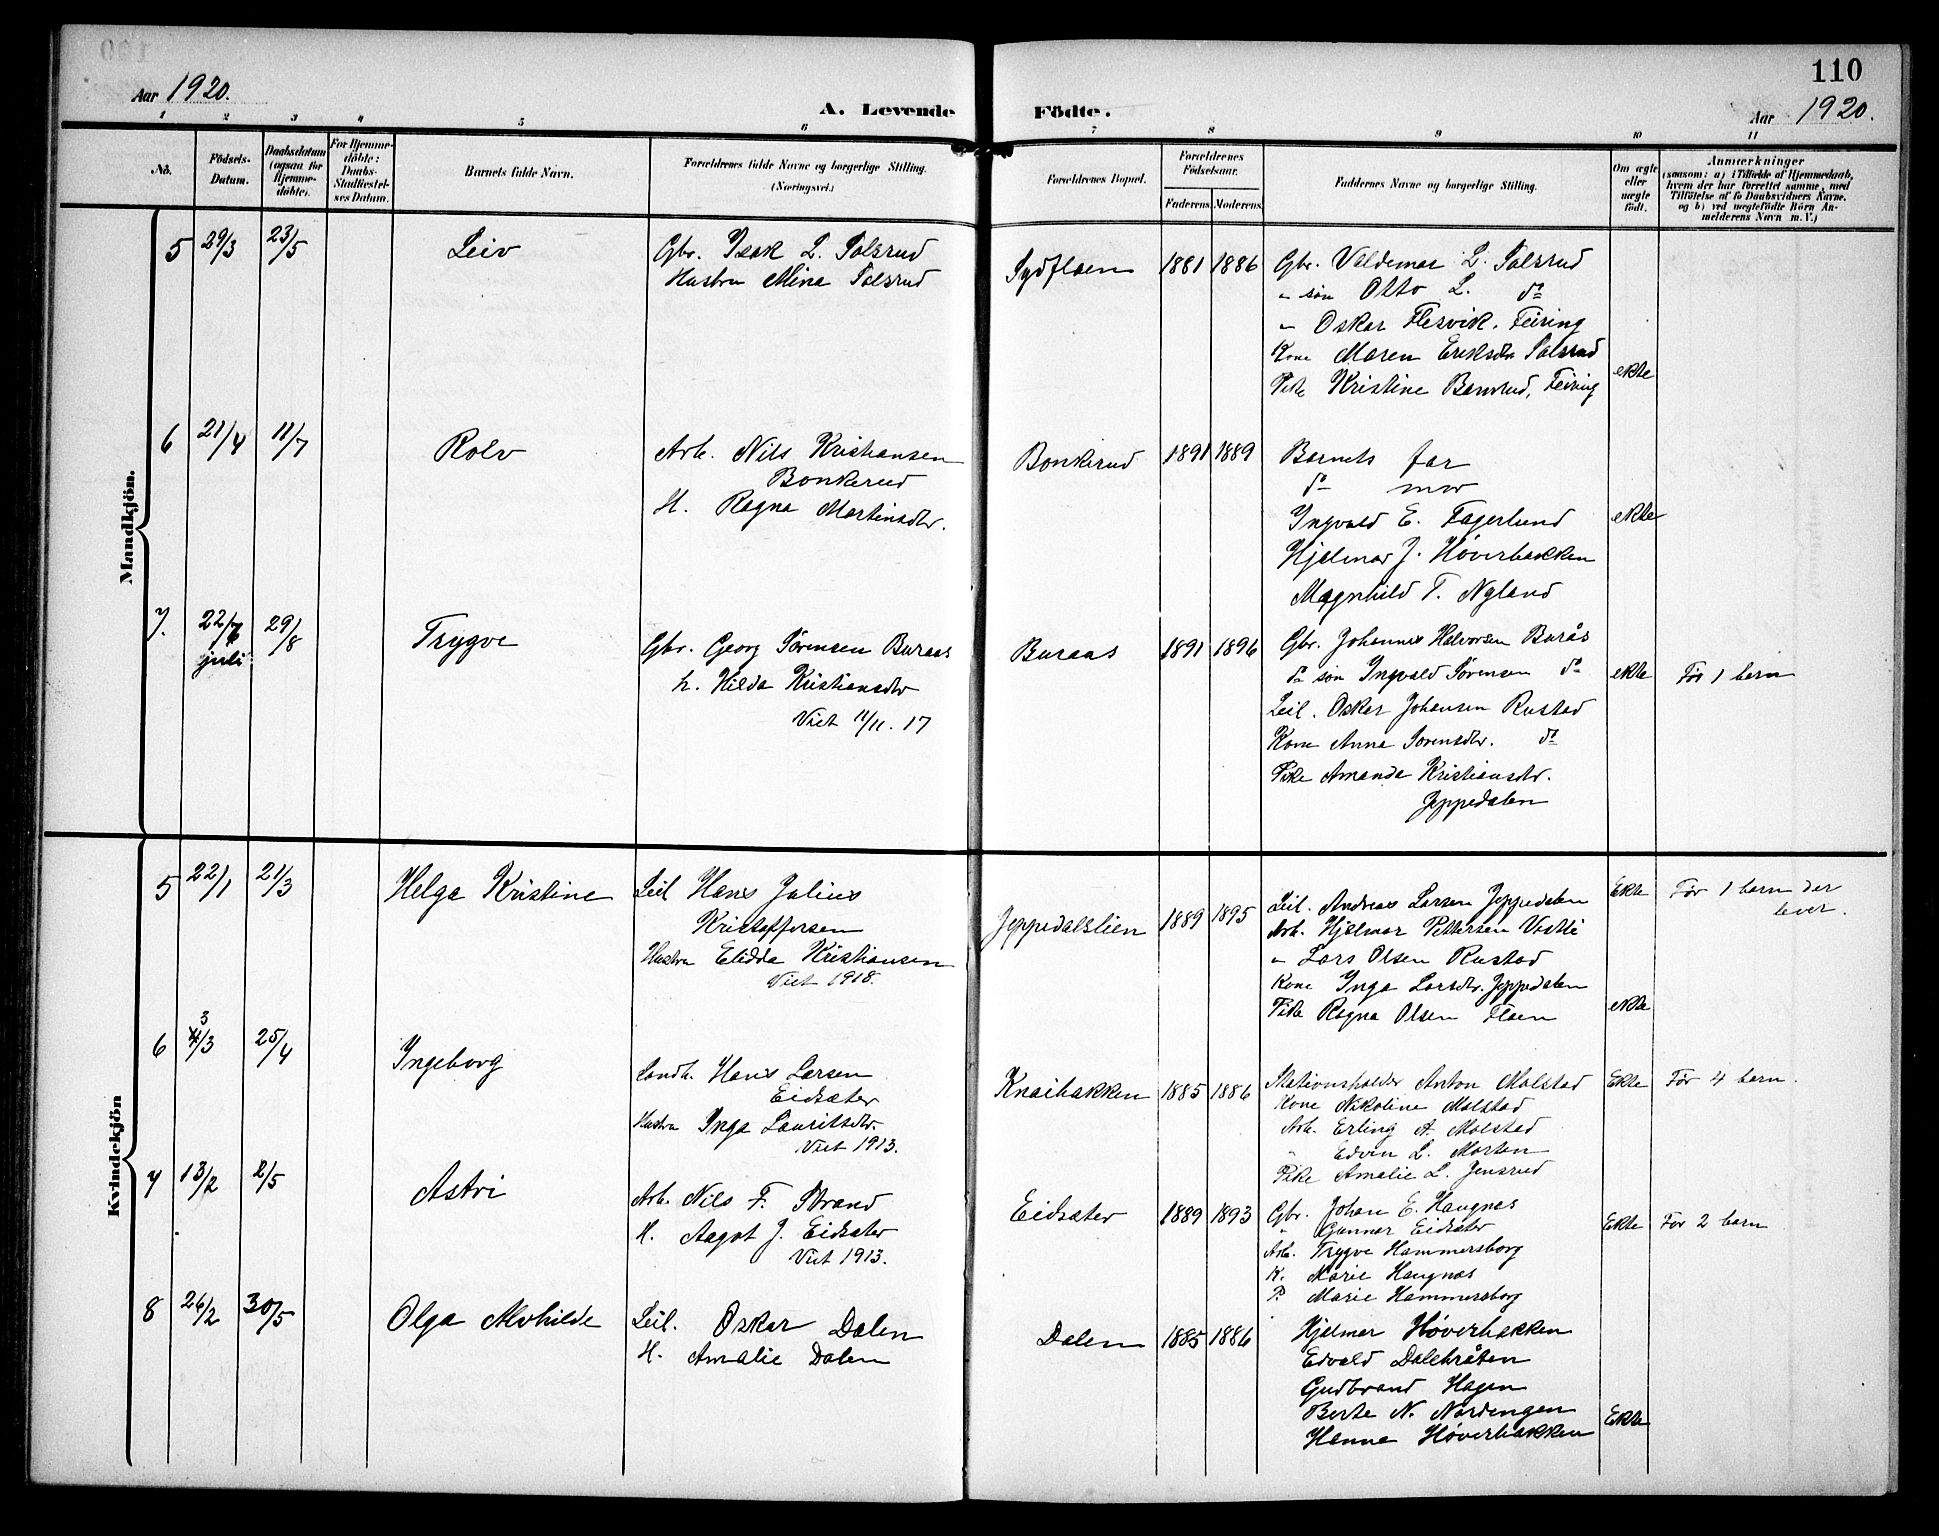 110
Aar 1920.
A. Levende Födte.
Aar 1920.
1 2 3 4 5 6 7 8 9 10 11
No.
Födsels-
Datum.
Daabsdatum
(ogsaa for
Hjemme-
döbte).
For Hjemme-
döbte:
Daabs-
Stadfæstel-
ses Datum.
Barnets fulde Navn.
Forældrenes fulde Navne og borgerlige Stilling.
(Næringsvei.)
Forældrenes Bopæl.
Forældrenes
Födselsaar.
Faderens. Moderens.
Faddernes Navne og borgerlige Stilling.
Om ægte
eller
uægte
födt.
Anmærkninger
(saasom: a) i Tilfælde af Hjemmedaab,
hvem der har forrettet samme, med
Tilföielse af to Daabsvidners Navne,
og b) ved uægtefödte Börn An-
melderens Navn m. V.)
Mandkjön.
5 29/3 23/5 Leiv
Gbr. Isak L. Salsrud
Hustru Mina Salsrud
Sydfloen 1881 1886
Gbr. Valdemar L. Salsrud
" søn Otto L. do
" Oskar Flesvik. Feiring
Kone Maren Eriksdtr Salsrud
Pike Kristine Bamrud, Feiring
ekte
6 21/4 11/7 Rolv
Arb. Nils Kristiansen
Bonkerud
H. Ragna Martinsdtr.
Bonkerud 1891 1889
Barnets far
do mor
Ingvald E. Fagerlund
Hjalmar J. Høverbakken
Magnhild T. Nyland
ekte
7. 22/7 29/8 Trygve
juli
Gbr. Georg Sørensen Buraas
h. Hilda Kristiansdtr
Viet 11/11. 17
Buraas 1891 1896
Gbr. Johannes Halvorsen Burås
do søn Ingvald Sørensen do
Leil. Oskar Johansen Rustad
Kone Anna Sorensdtr. do
Pike Amanda Kristiansdtr.
Jeppedalen
ekte Før 1 barn
Kvindekjön
5 22/1 21/3 Helga Kristine
Leil Hans Julius
Kristoffersen
Hustru Elidda Kristiansen
Viet 1918.
Jeppedalslien 1889 1895
Leil. Andreas Larsen Jeppedalen
Arb. Hjalmar Pettersen Vestli
" Lars Olsen Rustad
Kone Inga Larsdtr. Jeppedalen
Pike Ragna Olsen Floen
Ekte Før 1 barn der
lever.
ekte
6 3/3 25/4 Ingeborg
Landh. Hans Larsen
Eidsæter
Hustru Inga Lauritsdtr.
Viet 1913.
Knaibakken 1885 1886
Stationsholder Anton Molstad
Kone Nikoline Molstad
Arb. Erling A. Molstad
" Edvin L. Morten
Pike Amalie L. Jensrud
Ekte Før 4 barn.
7 13/2 2/5 Astri
Arb. Nils F. Strand
H. Aagot J. Eidsæter
Viet 1913.
Eidsæter 1889 1893
Gbr. Johan E. Haugnæs
" Gunnar Eidsæter
Arb. Trygve Hammersborg
K. Marie Haugnæs
P. Marie Hammersborg
Ekte Før 2 barn
8 26/2 30/5 Olga Alvhilde
Leil. Oskar Dalen
H. Amalie Dalen
Dalen 1885 1886
Hjalmar Høverbakken
Edvald Dalebråten
Gudbrand Hagen
Berte N. Nordengen
Hanna Høverbakken
Ekte